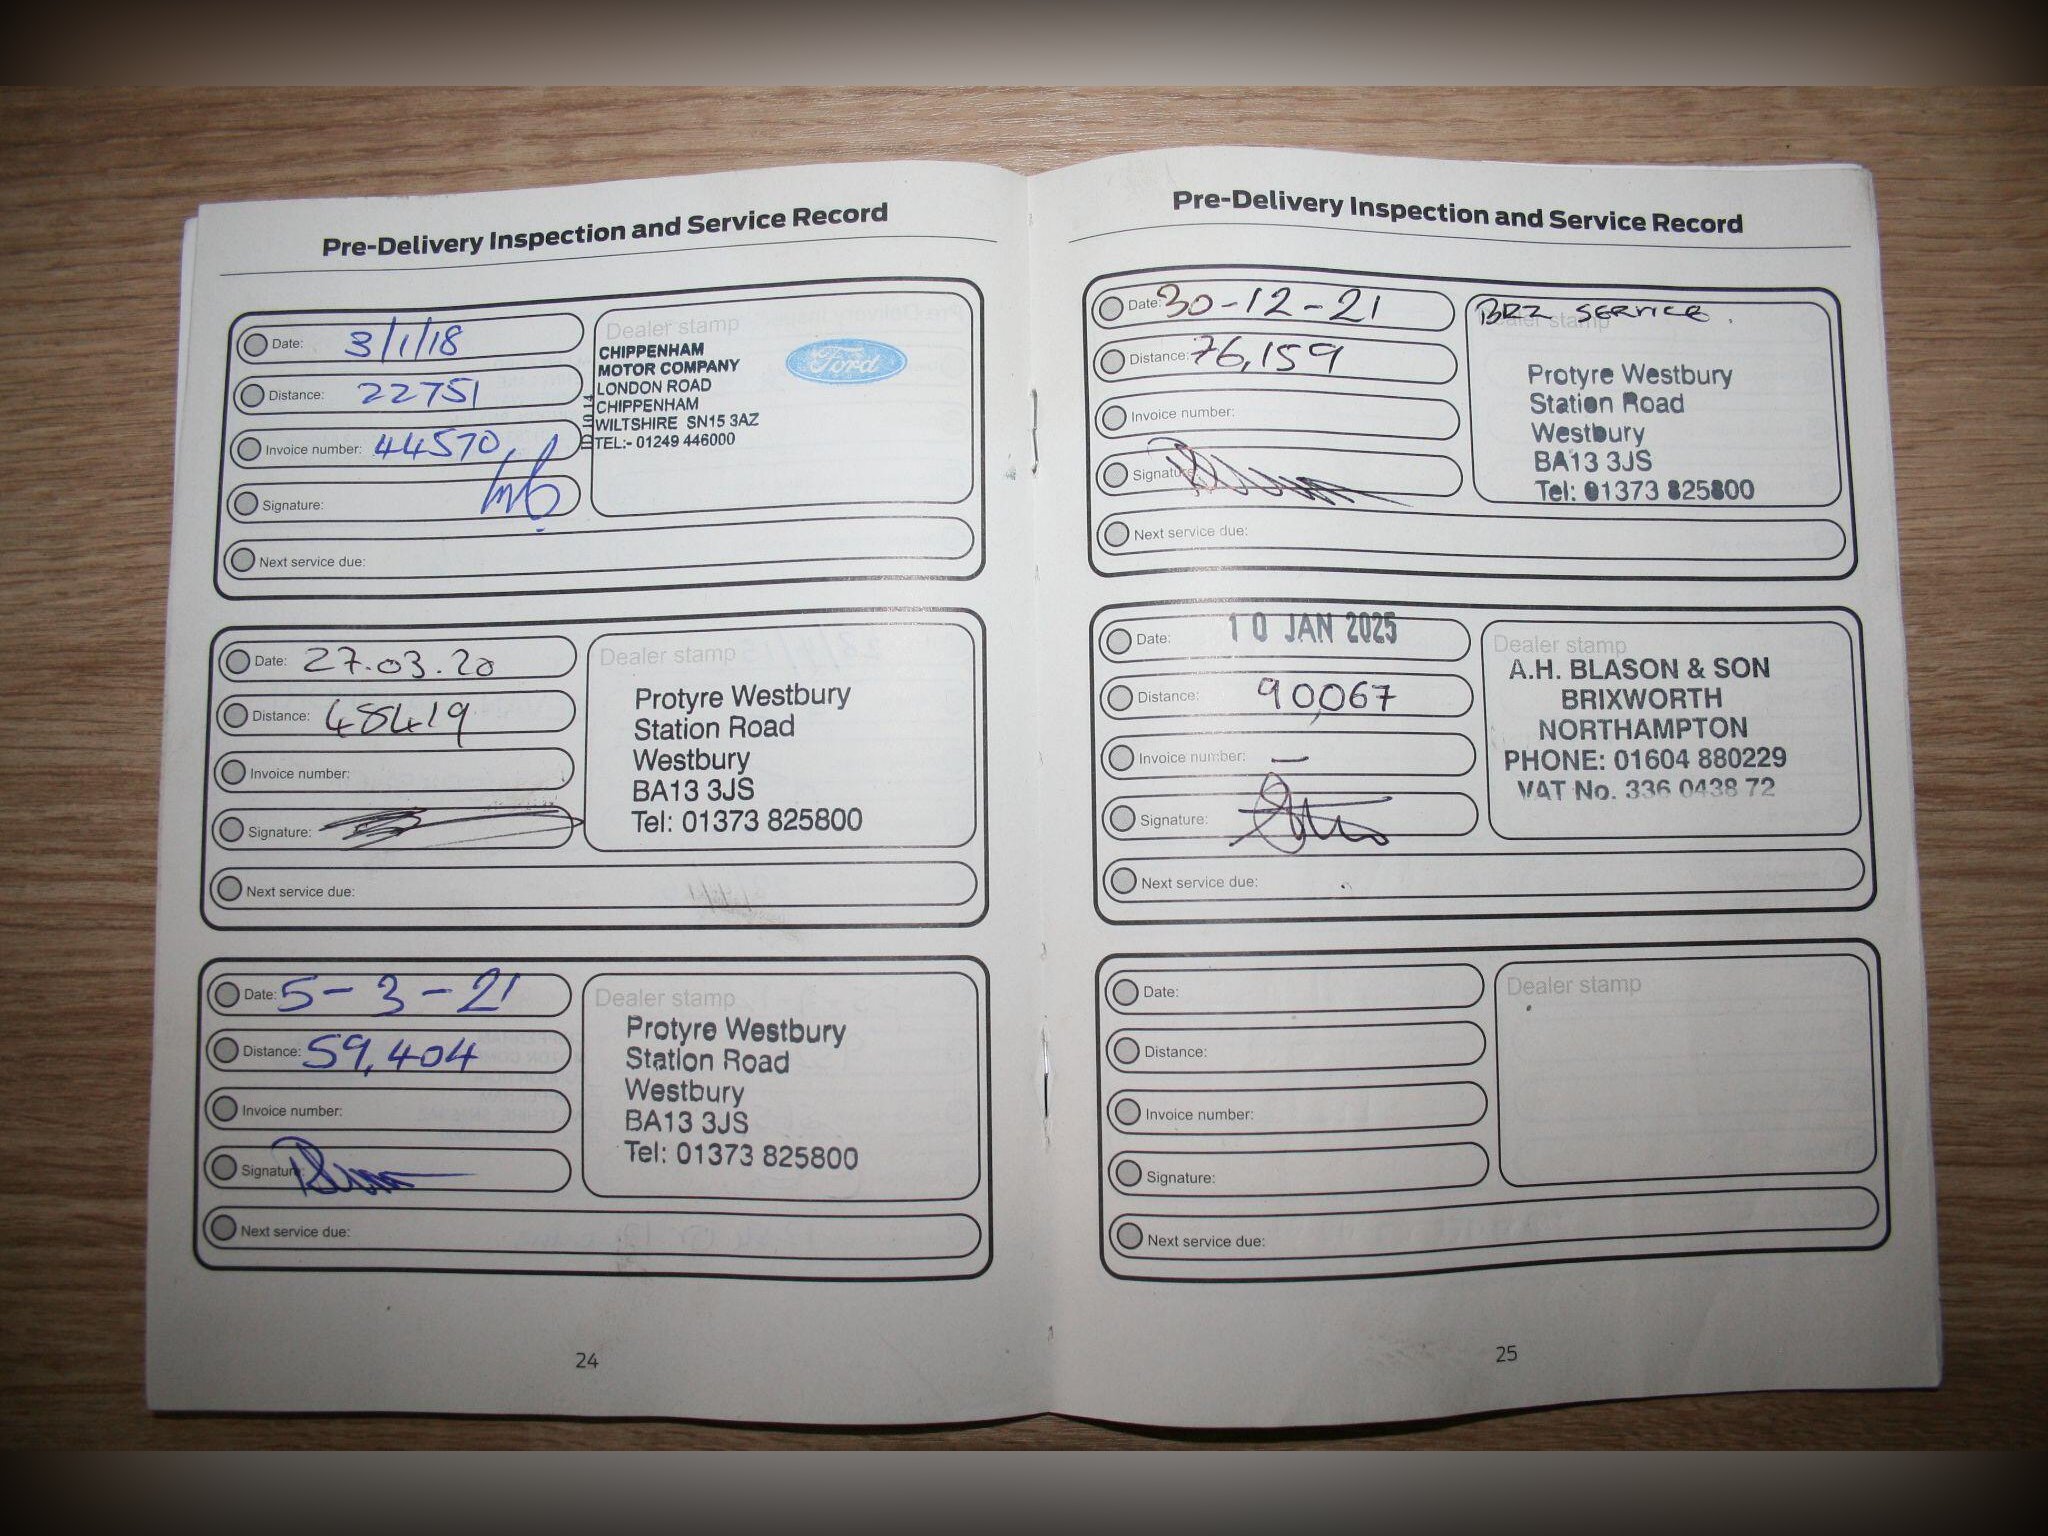 Pre-Delivery Inspection and Service Record
Date: 3/1/18
Distance: 22751
Invoice number: 44570
Signature:
Next service due:
Dealer stamp
CHIPPENHAM
MOTOR COMPANY
LONDON ROAD
CHIPPENHAM
WILTSHIRE SN15 3AZ
TEL:- 01249 446000
Ford
Date: 27.03.20
Distance: 48419
Invoice number:
Signature:
Next service due:
Dealer stamp
Protyre Westbury
Station Road
Westbury
BA13 3JS
Tel: 01373 825800
Date: 5-3-21
Distance: 59,404
Invoice number:
Signature:
Next service due:
Dealer stamp
Protyre Westbury
Station Road
Westbury
BA13 3JS
Tel: 01373 825800
24
Pre-Delivery Inspection and Service Record
Date: 30-12-21
Distance: 76,159
Invoice number:
Signature:
Next service due:
Dealer stamp
SERVICE.
Protyre Westbury
Station Road
Westbury
BA13 3JS
Tel: 01373 825800
Date: 10 JAN 2025
Distance: 90,067
Invoice number: —
Signature:
Next service due:
Dealer stamp
A.H. BLASON & SON
BRIXWORTH
NORTHAMPTON
PHONE: 01604 880229
VAT No. 336 0438 72
Date:
Distance:
Invoice number:
Signature:
Next service due:
Dealer stamp
25